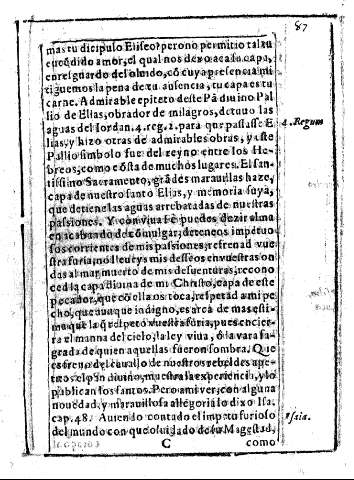 87
mas tu dicipulo Eliseo? pero no permitio tal tu
encēdido amor, el qual nos dexo aca la capa,
en resguardo del oluido, cō cuya presencia mi
tiguemos la pena de tu ausencia, tu capa es tu
carne. Admirable epiteto deste Pā diuino Pal
lio de Elias, obrador de milagros, detuuo las
aguas del Iordan. 4. reg. 2. para que passasse E
4. Regum
lias, y hizo otras de admirables obras, y este
Pallio simbolo fue del reyno entre los He-
breos, como cōsta de muchos lugares. El san-
tissimo Sacramento, grādes marauillas haze,
capa de nuestro santo Elias, y memoria suya,
que detiene las aguas arrebatadas de nuestras
passiones. Y con viua fè puedes dezir alma
en acabando de comulgar, deteneos impetuo
sos corrientes de mis passiones, refrenad vue
stra furia, no lleueys mis desseos en vuestras on
das al mar muerto de mis desuenturas, recono
ced la capa diuina de mi Christo, capa de este
pecador, que cō ella os toca, respetad a mi pe
cho, que aunque indigno, es arca de mas esti-
ma que la q̃ respetò vuestra furia, pues encier-
ra el manna del cielo, la ley viua, ò la vara sa-
grada de quien aquellas fueron sombra. Que
es freno del cauallo de nuestros rebeldes ape-
titos, el pā diuino, muestra la experiencia, y lo
publican los santos. Pero ami ver, con alguna
nouedad, y marauillosa allegoria lo dixo Isa.
cap. 48. Auiendo contado el impetu furioso
Isaia.
del mundo con que oluidado de su Magestad,
C como